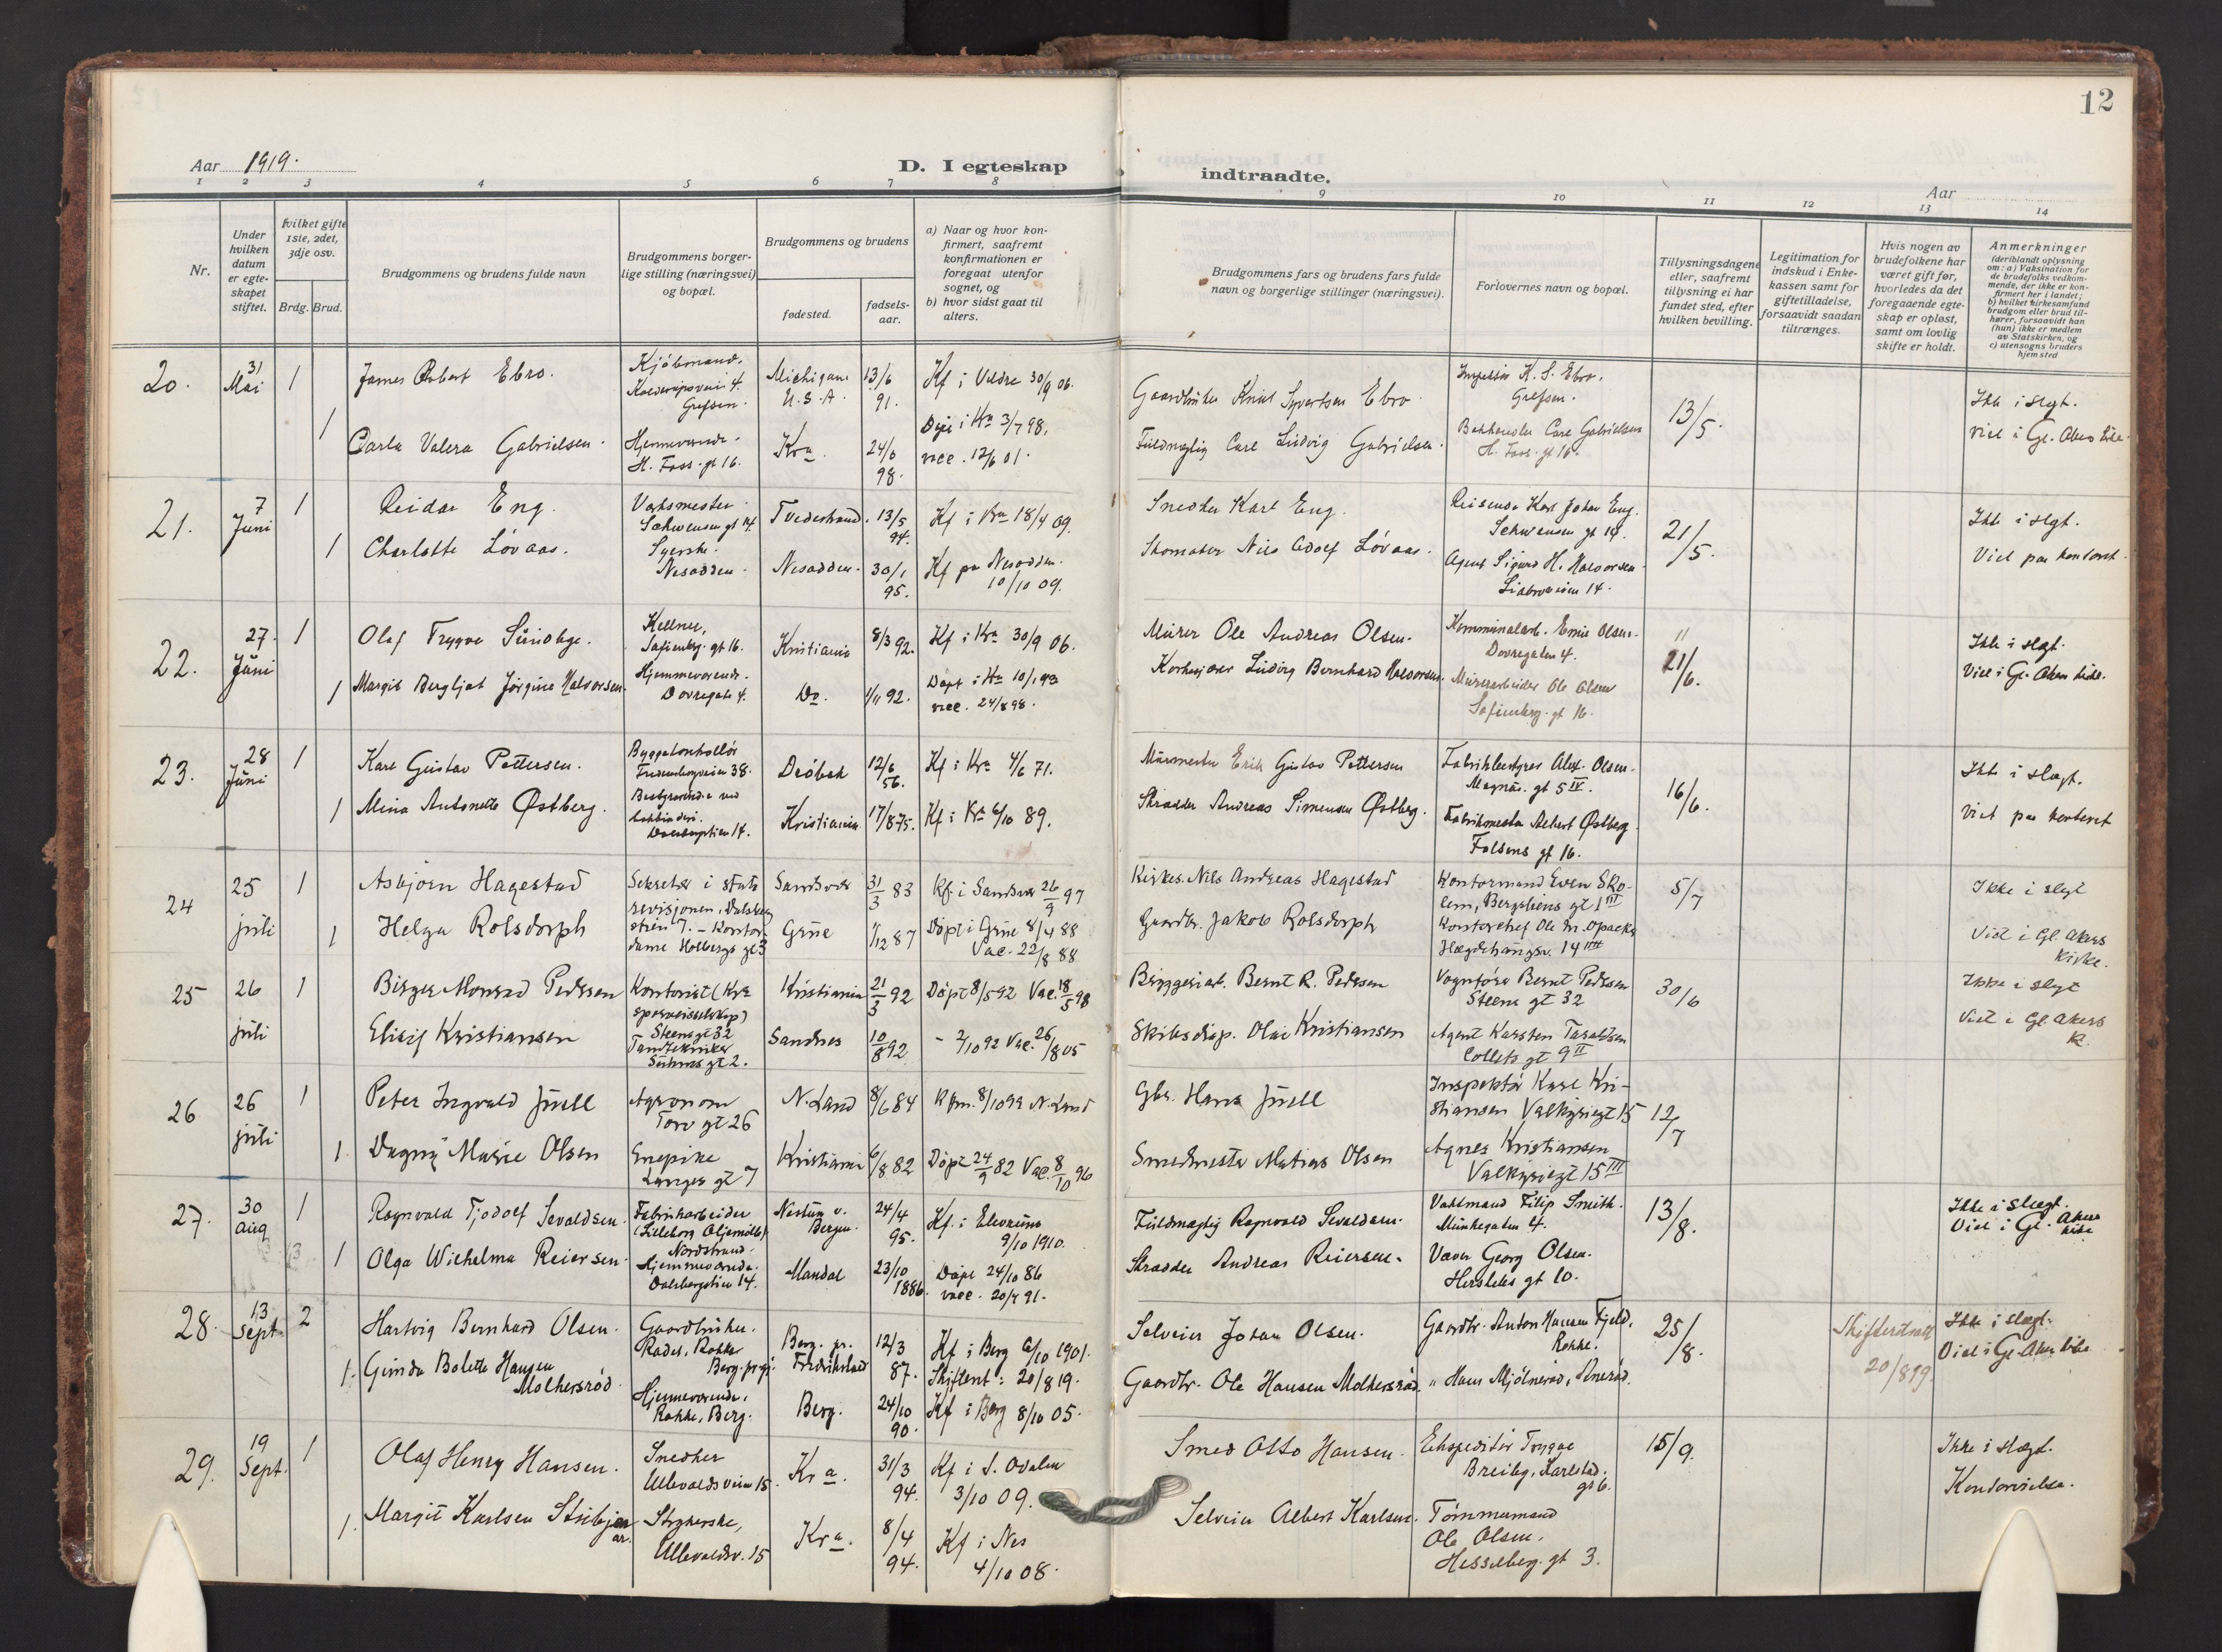 12
Aar 1919.
D. I egteskap
indtraadte.
Aar
1 2 3 4 5 6 7 8 9 10 11 12 13 14
Nr.
Under hvilken datum er egteskapet stiftet.
hvilket gifte 1ste, 2det, 3dje osv.
Brdg. Brud.
Brudgommens og brudens fulde navn
Brudgommens borgerlige stilling (næringsvei) og bopæl.
Brudgommens og brudens
fødested.
fødselsaar.
a) Naar og hvor konfirmert, saafremt konfirmationen er foregaat utenfor sognet, og
b) hvor sidst gaat til alters.
Brudgommens fars og brudens fars fulde navn og borgerlige stillinger (næringsvei).
Forlovernes navn og bopæl.
Tillysningsdagene eller, saafremt tillysning ei har fundet sted, efter hvilken bevilling.
Legitimation for indskud i Enkekassen samt for giftetilladelse, forsaavidt saadan tiltrænges.
Hvis nogen av brudefolkene har været gift før, hvorledes da det foregaaende egteskap er opløst, samt om lovlig skifte er holdt.
Anmerkninger (deriblandt oplysning om: a) Vaksination for de brudefolks vedkommende, der ikke er konfirmert her i landet; b) hvilket kirkesamfund brudgom eller brud tilhører, forsaavidt han (hun) ikke er medlem av Statskirken, og c) utensogns bruders hjemsted
20. 31 Mai 1 James Robert Ebro. Kjøbmand. 4. Grefsen. Michigan. U.S.A. 13/6 91. Kf i Vildre 30/9 06. Gaardbruker Knut Syvertsen Ebro K. S. Ebro. Grefsen. 13/5. Ikke i slegt.
1 Carla Valera Gabrielsen. Hjemmevær. H. Foss. gt 16. Kra 24/6 98. Døpt i Kra 3/7 98. vacc. 12/6 01. Fuldmægtig Carl Ludvig Gabrielsen. Carl Gabrielsen H. Foss. gt 16. Viet i Gl. Akers kirke.
21. 7 Juni 1 Reidar Eng. Verksmester Schwensen gt 14. Tvedestrand. 13/5 94. Kf i Kra 18/4 09. Snedker Karl Eng. Reisende Karl Johan Eng. Schwensen gt 14. 21/5. Ikke i slegt.
1 Charlotte Løvaas. Syerske. Nesodden. Nesodden. 30/1 95. Kf paa Nesodden. 10/10 09. Skomaker Nils Adolf Løvaas. Agent Sigurd H. Halvorsen. 14. Viet paa kontoret.
22. 27. Juni 1 Olaf Trygve Sundbye. Kellner, Sofienbg. gt 16. Kristiania 8/3 92. Kf i Kra 30/9 06. Murer Ole Andreas Olsen. Kommunalarb. Emil Olsen. Dovregaten 4. 11 21/6. Ikke i slegt.
1 Margit Bergljot Jørgine Halvorsen. Hjemmeværende. Dovregata 4. Do. 1/11 92. Døpt i Kra 10/1 93 vacc. 24/8 98. Ludvig Bernhard Halvorsen. Murerarbeider Ole Olsen Sofienberg. gt 16. Viet i Gl. Akers kirke.
23. 28 Juni 1 Karl Gustav Pettersen. Byggekontrollør 38. Drøbak 12/6 56. Kf i Kra 4/6 71. Murmester Erik Gustav Pettersen Alex. Olsen. Magnus. gt 5 IV. 16/6. Ikke i slegt.
1 Mina Antonette Østberg. Bestyrerinde ved 14. Kristiania 17/8 75. Kf i Kra 6/10 89. Skrædder Andreas Simensen Østberg. Albert Østberg Folsens gt 16. Viet paa kontoret
24 25 juli 1 Asbjørn Hagestad Sekretær i statsrevisjonen, 7. Sandsvær 31/3 83 Kf. i Sandsvær 26/9 97 Kirkes. Nils Andreas Hagestad Kontormand Even Skolem, Bergsliens gt 1 III 5/7 Ikke i slegt
1 Helga Rolsdorph Kontordame Holbergs gt 3 Grue 1/12 87 Døpt i Grue 8/4 88 Vac. 22/8 88 Gaardbr. Jakob Rolsdorph Kontorchef Ole M. Opaker 14 III Viet i Gl. Akers kirke.
25 26 juli 1 Birger Monrad Pedersen Kontorist (Kra sporveiselskap) Steens gt 32 Kristiania 21/3 92 Døpt 8/5 92 Vac. 18/5 98 Bryggeriarb. Bernt R. Pedersen Vognfører Bernt Pedersen Steens gt 32 30/6 Ikke i slegt
Elisif Kristiansen Tandtekniker gt 2. Sandnes 10/8 92 - 2/10 92 Vac. 26/8 05 Skibsdisp. Olai Kristiansen Agent Karsten Collets gt 9 II Viet i Gl Akers K.
26 26 juli 1 Peter Ingvald Juell Agronom Torv gt 26 N. Land 8/6 84 Kfm. 8/10 99 N. Land Gbr. Hans Juell Inspektør Karl Kristiansen Valkyriegt 15 12/7
1 Dagny Marie Olsen Enepike Langes gt 7 Kristiania 6/8 82 Døpt 24/9 82 Vac. 8/10 96 Smedmester Matias Olsen Agnes Kristiansen Valkyriegt 15 III
27. 30 Aug 1 Ragnvald Tjodolf Sevaldsen. Fabrikarbeider (Lilleborg Oljemølle) Nordstrand. Nestun v. Bergen. 24/4 95. Kf. i Elverum 9/10 1910. Fuldmægtig Ragnvald Sevaldsen. Vaktmand Filip Smith. Munkegaten 4. 13/8. Ikke i slegt. Viet i Gl. Akers kirke
1 Olga Wilhelma Reiersen. Hjemmeværende. Dalsbergstien 14. Mandal 23/10 1886. Døpt 24/10 86 vacc. 20/7 91. Skrædder Andreas Reiersen. Væver Georg Olsen. Herslebs gt 10.
28. 13 Sept. 2 Hartvig Bernhard Olsen. Gaardbruker. Rokke Berg. prgj. Berg. pr. Fredrikshald 12/3 87. Kf i Berg 6/10 1901. Skiftent: 20/8 19. Selveier Johan Olsen. Gaardbr. Anton Hansen Fjeld. Rokke. 25/8. Skifteattest 20/8 19. Ikke i slegt. Viet i Gl. Aker kirke
1. Gunda Bolette Hansen Molkersrød. Hjemmeværende, Rokke, Berg. Berg. 24/10 90. Kf i Berg 8/10 05. Gaardbr. Ole Hansen Molkersrød. " Hans
29. 19 Sept. 1 Olaf Henry Hansen. Snedker Ullevaldsveien 15. Kra. 31/3 94. Kf i S. Odalen 3/10 09. Smed Otto Hansen. Ekspeditør Trygve Breiby, Karlstad. gt 6. 15/9. Ikke i slegt.
1. Margit Karlsen Strykerske, Ullevaldsv. 15 Kra. 8/4 94. Kf i Nes 4/10 08. Selveier Albert Karlsen. Tømmermand Ole Olsen. Hesselberg. gt 3. Kontorvielse.